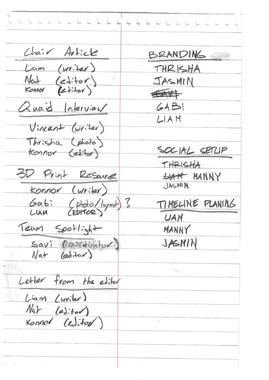 Chair Article
Liam (writer)
Nat (editor)
Konnor (editor)
Quaid Interview
Vincent (writer)
Thrisha (photo)
Konnor (editor)
3D Print Resource
Konnor (writer)
Gabi (photo/layout) ?
LIAM (EDITOR)
Team Spotlight
Savi (coordinator)
Nat (editor)
Letter from the editor
Liam (writer)
Nat (editor)
Konnor (editor)
BRANDING
THRISHA
JASMIN
SAVI
GABI
LIAM
SOCIAL SETUP
THRISHA
LIAM MANNY
JASMIN
TIMELINE PLANING
LIAM
MANNY
JASMIN